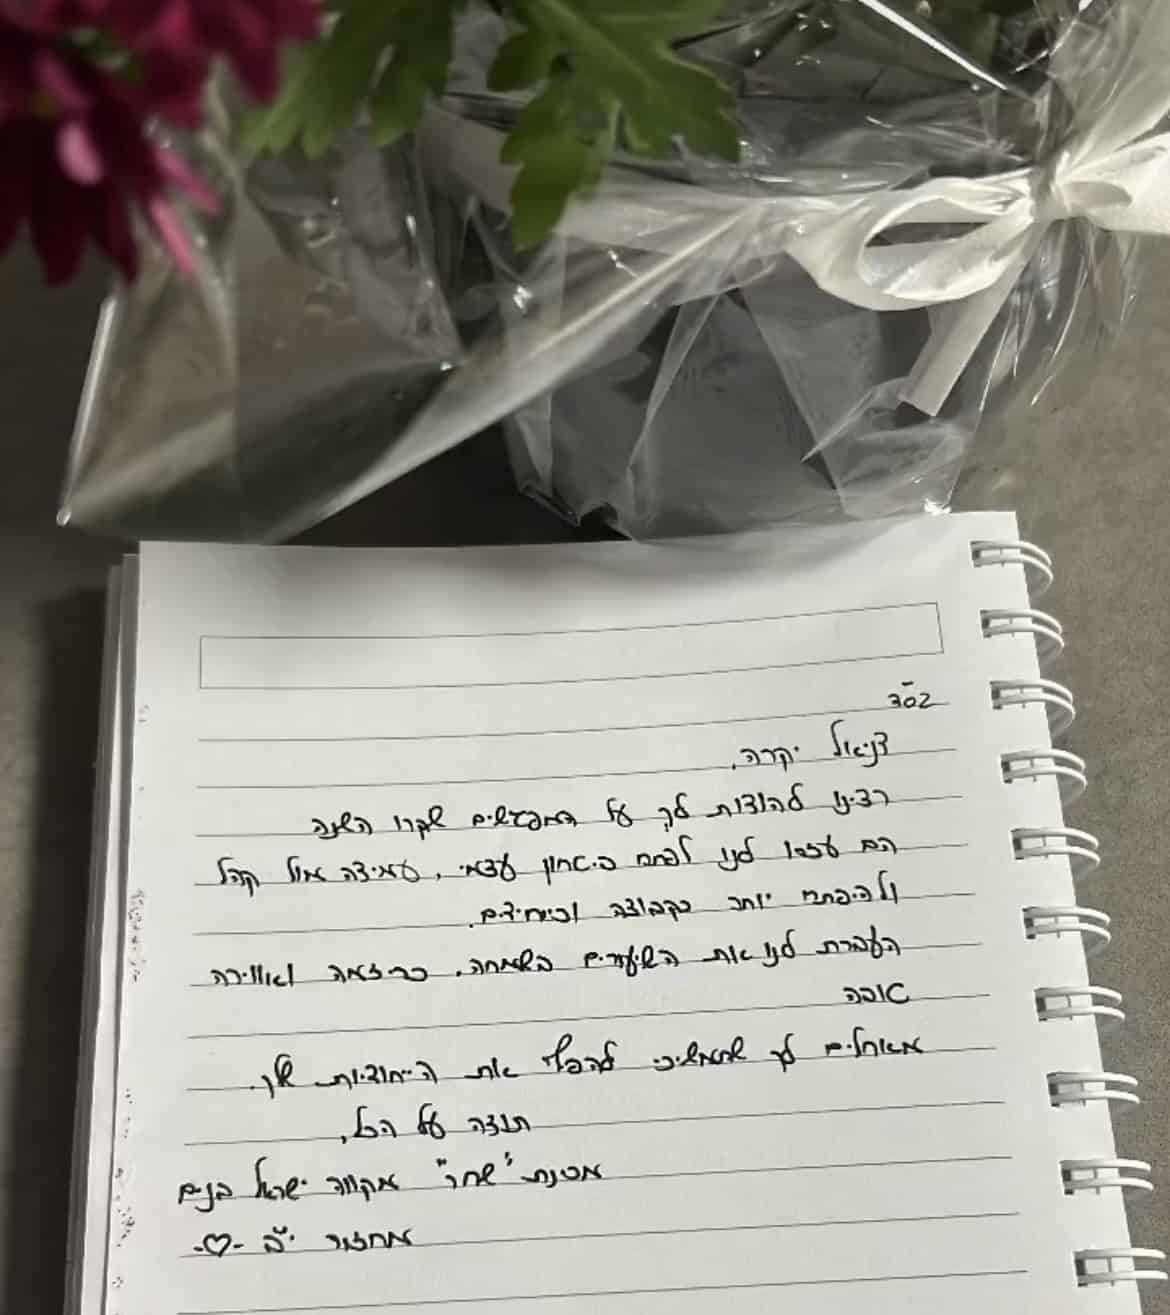 בס"ד
דניאל יקרה,
רצינו להודות לך על המפגשים שקרו השנה
הם עזרו לנו לפתח ביטחון עצמי, עמידה מול קהל
ולהיפתח יותר כקבוצה וכיחידים.
העברת לנו את השיעורים בשמחה, כריזמה ואווירה
טובה
מאחלים לך שתמשיכי להפיץ את הייחודיות שלך.
תודה על הכל,
מכינת "שחר" מקווה ישראל בנים
מחזור י"ב -♡-